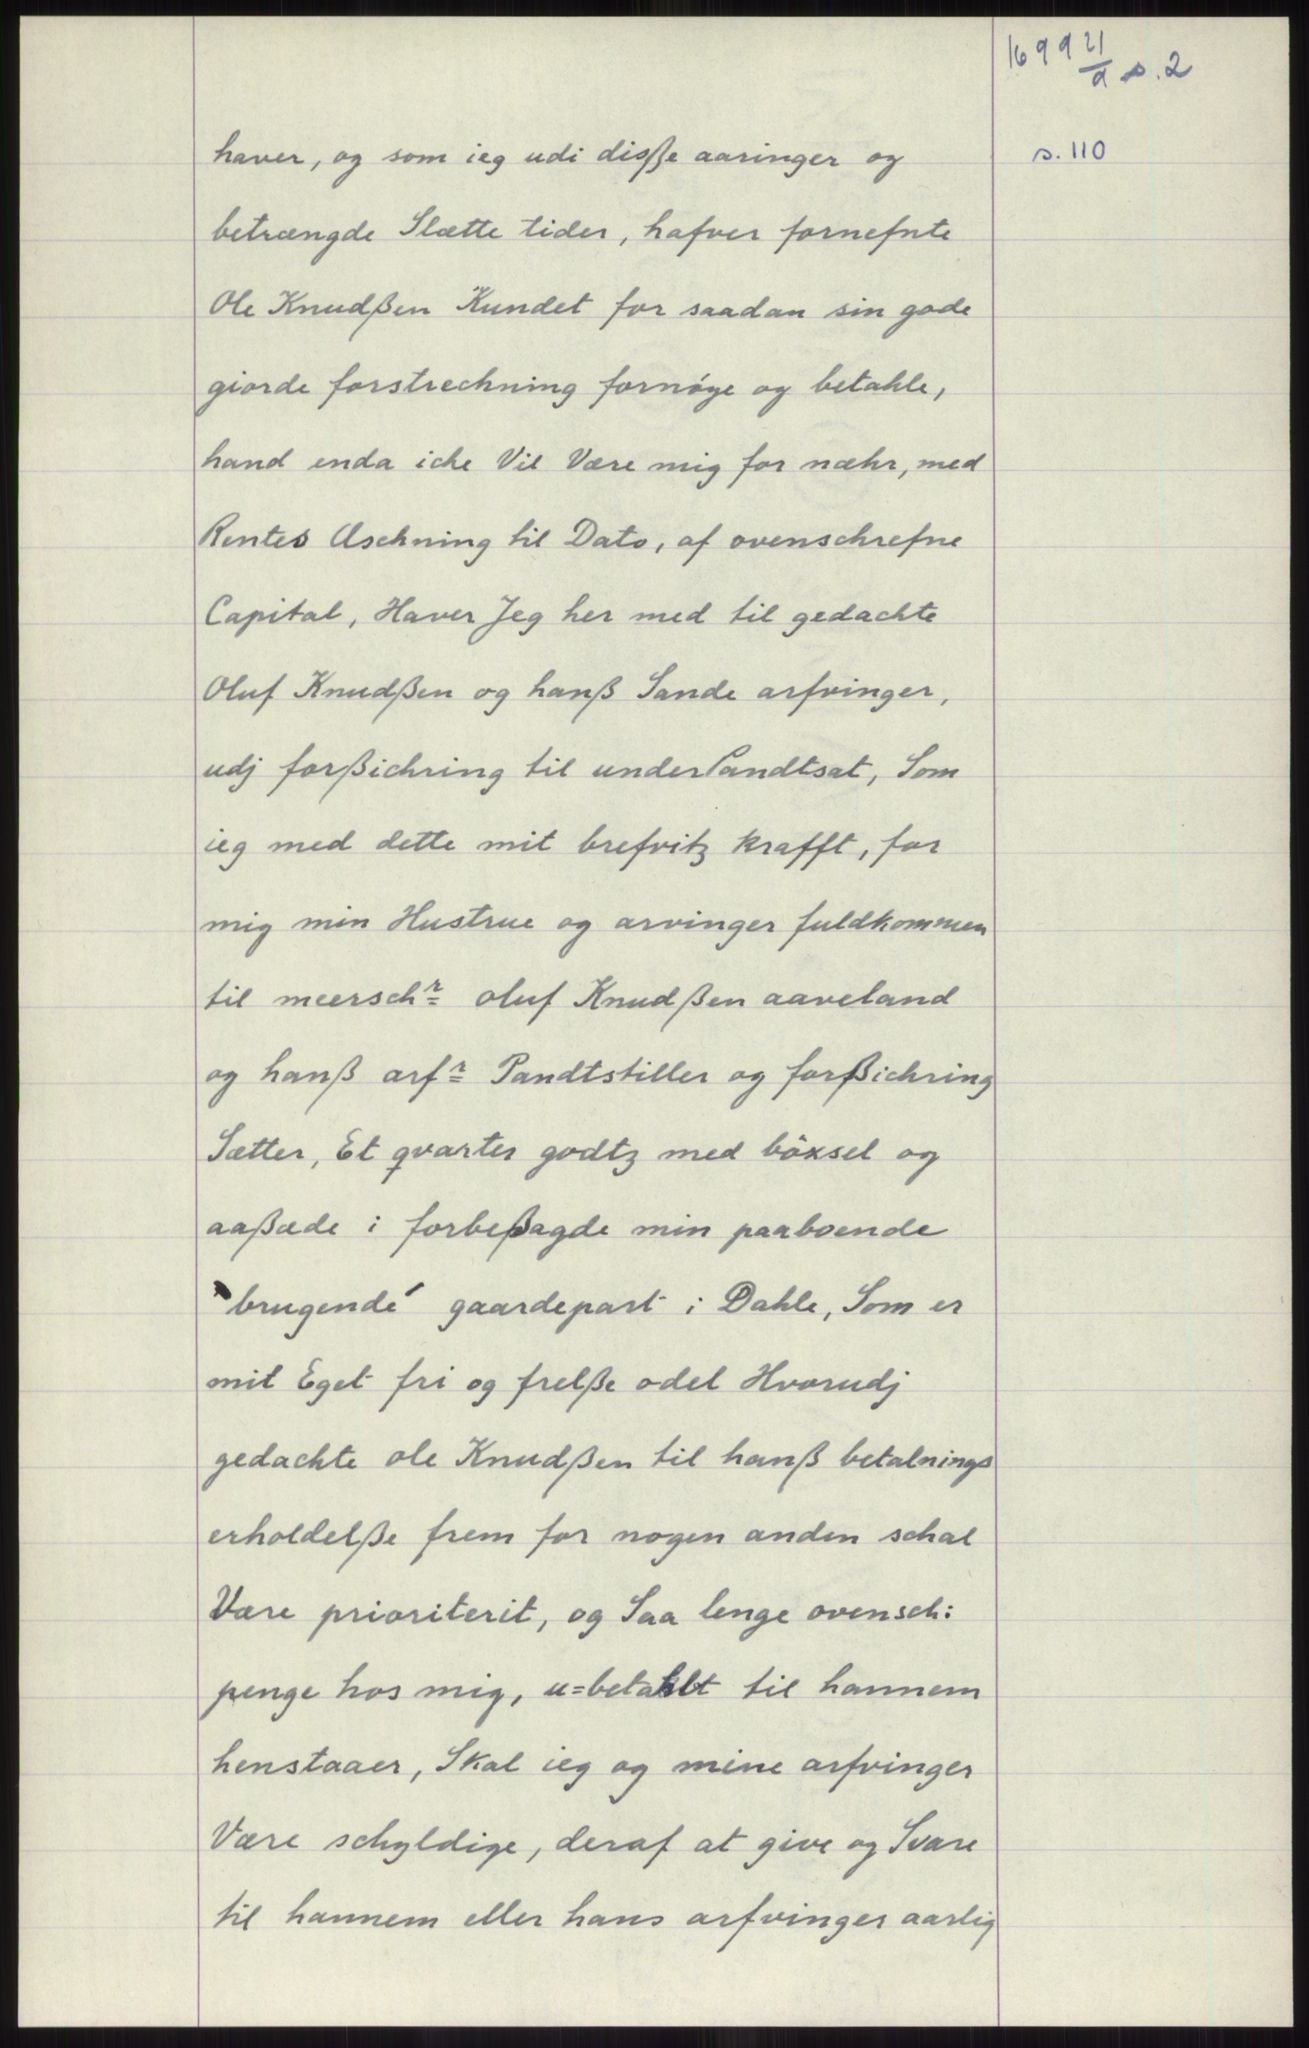 1699 21/9 s. 2
s. 110
haver, og som ieg udi disße aaringer og
betrængde Slætte tider, hafver fornefnte
Ole Knudßen Kundet for saadan sin gode
giorde forstrechning fornøye og betahle,
hand enda iche Vil Være mig for næhr, med
Rentes Aschning til Dato, af ovenschrefne
Capital, Haver Jeg her med til gedachte
Oluf Knudßen og hanß Sande arfvinger,
udj forßichring til underPandtsat, Som
ieg med dette mit brefvitz krafft, for
mig min Hustrue og arvinger fuldkommen
til meerschr= oluf Knudßen aaveland
og hanß arfr= Pandtstiller og forßichring
Sætter, Et qvarter godtz med böxsel og
aaßæde i forbeßagde min paaboende
brugende gaardepart i Dahle, Som er
mit Eget fri og frelße odel Hvorudj
gedachte ole Knudßen til hanß betalnings
erholdelße frem for nogen anden schal
Være prioriterit, og Saa lenge ovensch:
penge hos mig, u=betahlt til hannem
henstaaer, Skal ieg og mine arfvinger
Være schyldige, deraf at give og Svare
til hannem eller hans arfvinger aarlig